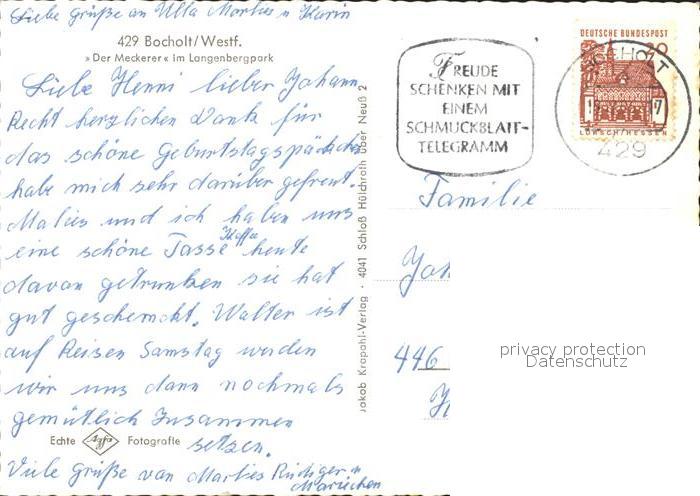 Liebe Grüße an Ulla Marlies u Karin
429 Bocholt/Westf.
»Der Meckerer« im Langenbergpark
Liebe Henni lieber Johann
Recht herzlichen Dank für
das schöne Geburtstagspäckchen
habe mich sehr darüber gefreut.
Malies und ich haben uns
eine schöne Tasse Kaffee heute
davon getrunken sie hat
gut geschemckt. Walter ist
auf Reisen Samstag werden
wir uns dann nochmals
gemütlich Zusammen
setzen.
Echte Agfa Fotografie
Viele grüße van Marlies Rüdiger u
Mariechen
Jakob Krapohl-Verlag · 4041 Schloß Hülchrath über Neuß 2
FREUDE
SCHENKEN MIT
EINEM
SCHMUCKBLATT-
TELEGRAMM
DEUTSCHE BUNDESPOST
20
LORSCH/HESSEN
BOCHOLT
429
Familie
Joh
446
privacy protection
Datenschutz